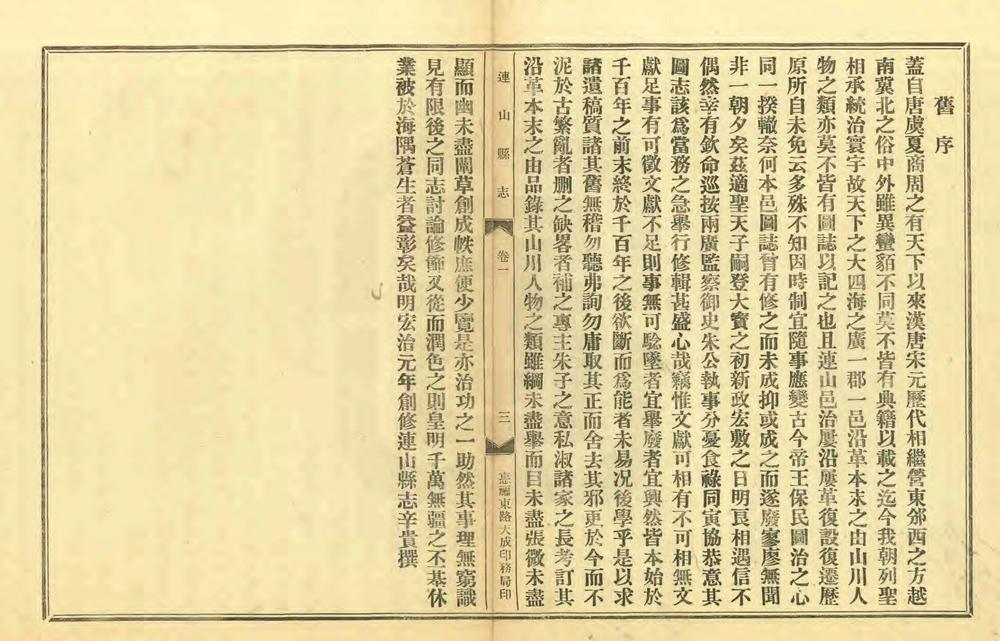 舊序
蓋自唐虞夏商周之有天下以來漢唐宋元歷代相繼營東邠西之方越
南冀北之俗中外雖異蠻貊不同莫不皆有典籍以載之迄今我朝列聖
相承統治寰宇故天下之大四海之廣一郡一邑沿革本末之由山川人
物之類亦莫不皆有圖誌以記之也且連山邑治屢沿屢革復設復遷歷
原所自未免云多殊不知因時制宜隨事應變古今帝王保民圖治之心
同一揆轍奈何本邑圖誌曾有修之而未成抑或成之而遂廢寥廖無聞
非一朝夕矣茲適聖天子嗣登大寶之初新政宏敷之日明良相遇信不
偶然幸有欽命巡按兩廣監察御史朱公執事分憂食祿同寅協恭意其
圖志該爲當務之急舉行修輯甚盛心哉竊惟文獻可相有不可相無文
獻足事有可徵文獻不足則事無可騐墜者宜舉廢者宜興然皆本始於
千百年之前末終於千百年之後欲斷而爲能者未易况後學乎是以求
諸遺稿質諸其舊無稽勿聽弗詢勿庸取其正而舍去其邪更於今而不
泥於古繁亂者删之缺畧者補之專主朱子之意私淑諸家之長考訂其
沿革本末之由品錄其山川人物之類雖綱未盡舉而目未盡張微未盡
連山縣志
卷一
三
惠愛東路大成印務局印
顯而幽未盡闡草創成帙庶便少覽是亦治功之一助然其事理無窮識
見有限後之同志討論修飾又從而潤色之則皇明千萬無疆之丕基休
業被於海隅蒼生者益彰矣哉明宏治元年創修連山縣志辛貴撰